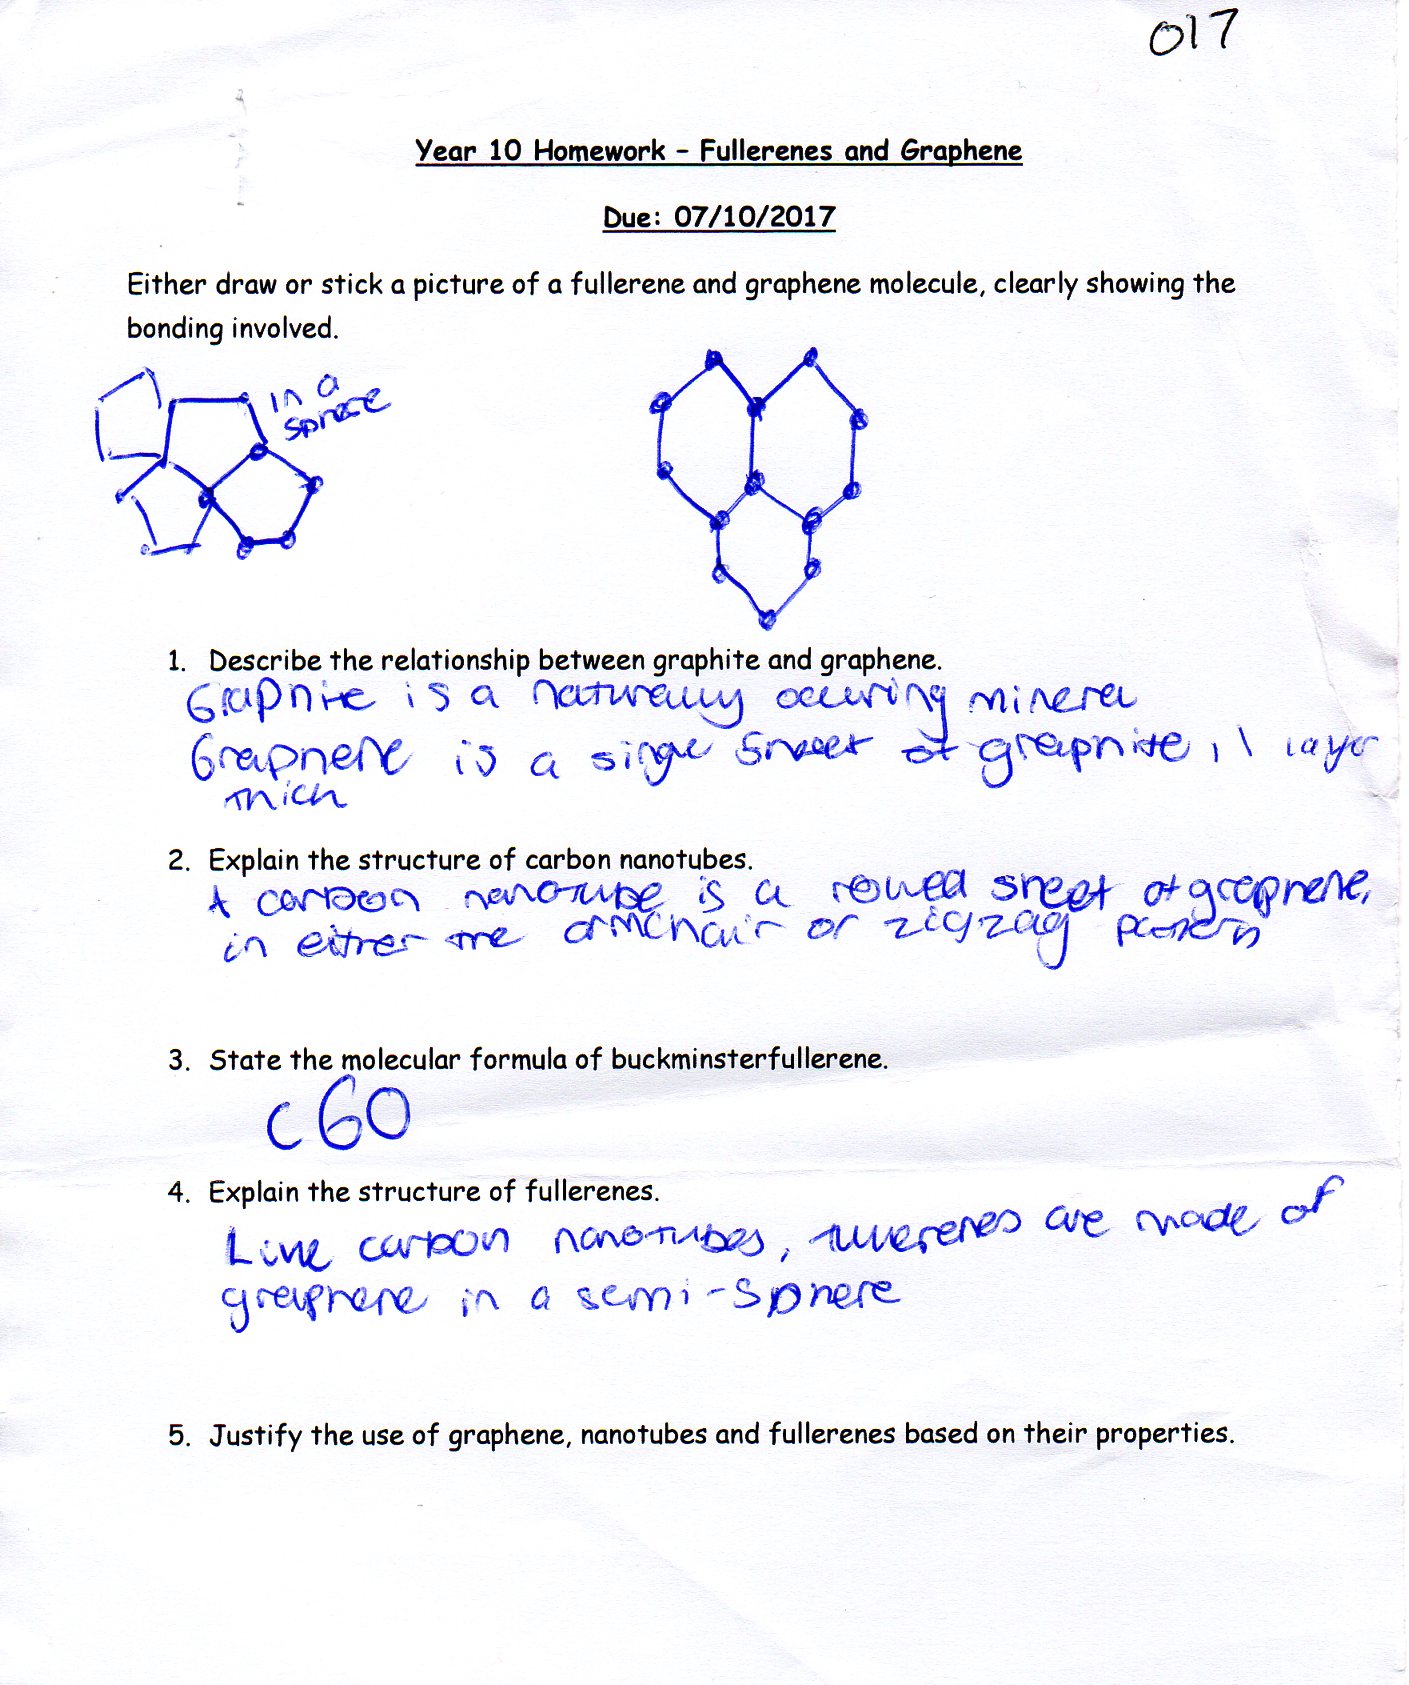 017
Year 10 Homework - Fullerenes and Graphene
Due: 07/10/2017
Either draw or stick a picture of a fullerene and graphene molecule, clearly showing the
bonding involved.
in a
sphere
1. Describe the relationship between graphite and graphene.
Graphite is a naturally occuring mineral
Graphene is a single sheet of graphite, 1 layer
thick
2. Explain the structure of carbon nanotubes.
A carbon nanotube is a rolled sheet of graphene,
in either the armchair or zigzag pattern
3. State the molecular formula of buckminsterfullerene.
C60
4. Explain the structure of fullerenes.
Like carbon nanotubes, fullerenes are made of
graphene in a semi-sphere
5. Justify the use of graphene, nanotubes and fullerenes based on their properties.